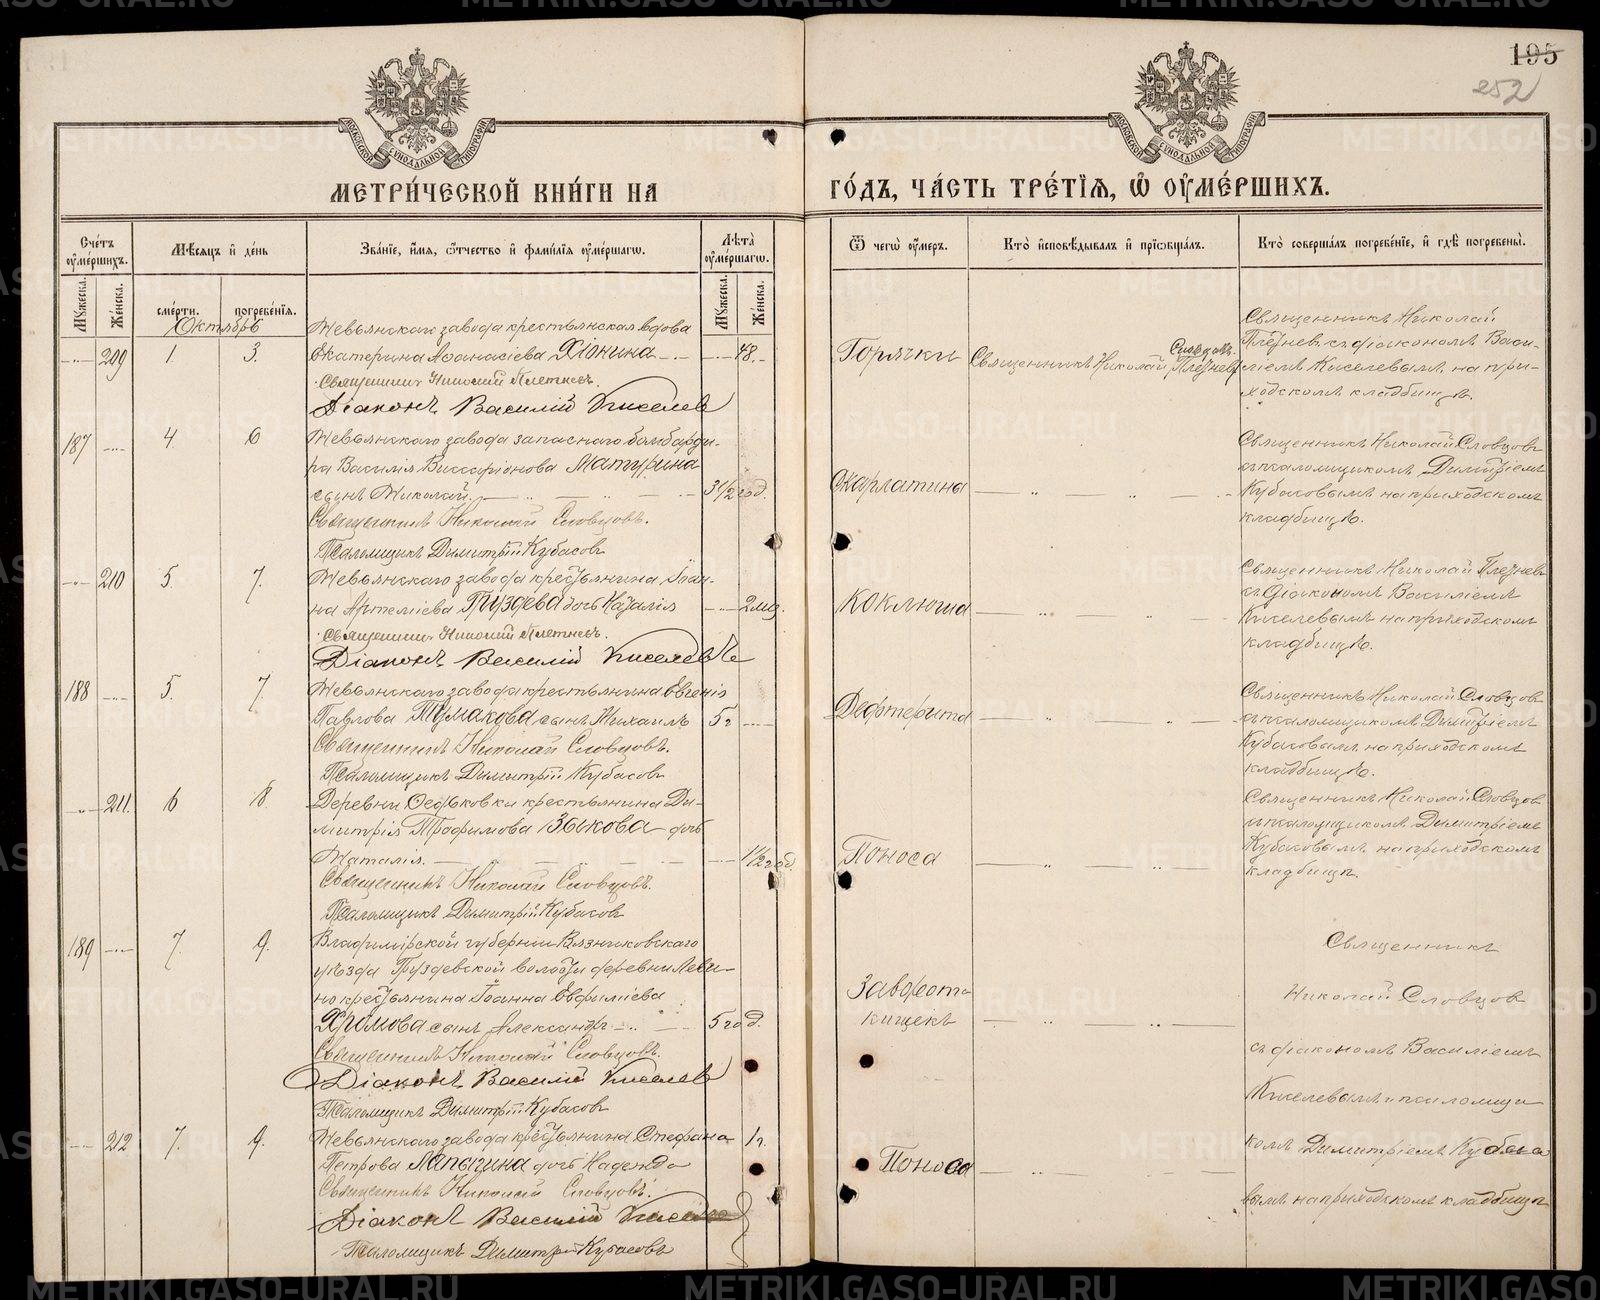 195
252
МОСКОВСКОЙ СѴНОДАЛЬНОЙ ТИПОГРАФІИ
МОСКОВСКОЙ СѴНОДАЛЬНОЙ ТИПОГРАФІИ
МЕТРИ́ЧЕСКОЙ КНИ́ГИ НА
ГО́ДЪ, ЧА́СТЬ ТРЕ́ТІЯ, Ѿ ОУМЕ́РШИХЪ.
Сче́тъ оуме́ршихъ.
Мꙋжеска.
Же́нска.
Мѣсяцъ и де́нь
сме́рти.
погребе́нія.
Зва́ніе, и́мя, о́тчество и фами́лія оуме́ршаго.
Лѣта̀ оуме́ршаго.
Мꙋжеска.
Же́нска.
Ѿ чегѡ̀ оу́меръ.
Кто̀ исповѣ́дывалъ и пріѡбща́лъ.
Кто̀ соверша́лъ погребе́ніе, и гдѣ̀ погребены̀.
Октябрь
Невьянскаго завода крестьянская вдова
209 1 3. Екатерина Аѳанасіева Хіонина 48.
Священникъ Николай Плетневъ.
Діаконъ Василій Киселевъ
Горячки
Священникъ Николай Словцовъ. Плетневъ
Священникъ Николай
Плетневъ съ діакономъ Васи-
ліемъ Киселевымъ на при-
ходскомъ кладбищѣ.
187 4 6 Невьянскаго завода запаснаго бомбарди-
ра Василія Виссаріонова Матурина
сынъ Николай. 3 1/2 год.
Священникъ Николай Словцовъ.
Псаломщикъ Димитрій Кубасовъ
Скарлатина
Священникъ Николай Словцовъ
съ псаломщикомъ Димитріемъ
Кубасовымъ на приходскомъ
кладбищѣ.
210 5 7. Невьянскаго завода крестьянина Іоан-
на Артеміева Груздева дочь Наталія 2 мѣ.
Священникъ Николай Плетневъ.
Діаконъ Василій Киселевъ
Коклюша
Священникъ Николай Плетневъ
съ Діакономъ Василіемъ
Киселевымъ на приходскомъ
кладбищѣ.
188 5. 7. Невьянскаго завода крестьянина Евгенія
Павлова Тумакова сынъ Михаилъ 5 г
Священникъ Николай Словцовъ.
Псаломщикъ Димитрій Кубасовъ
Дефтерита
Священникъ Николай Словцовъ
съ псаломщикомъ Димитріемъ
Кубасовымъ на приходскомъ
кладбищѣ.
211. 6 8. Деревни Ѳедьковки крестьянина Ди-
митрія Трофимова Зыкова дочь
Наталія. 1 1/2 год.
Священникъ Николай Словцовъ.
Псаломщикъ Димитрій Кубасовъ
Поноса
Священникъ Николай Словцовъ
съ псаломщикомъ Димитріемъ
Кубасовымъ на приходскомъ
кладбищѣ.
189 7. 9. Владимірской губерніи Вязниковскаго
уѣзда Груздевской волости деревни Леви-
но крестьянина Іоанна Евфиміева
Хромова сынъ Александръ 5 год.
Священникъ Николай Словцовъ.
Діаконъ Василій Киселевъ
Псаломщикъ Димитрій Кубасовъ
Заворота
кишекъ
Священникъ
Николай Словцовъ
съ діакономъ Василіемъ
Киселевымъ и псаломщи
комъ Димитріемъ Кубасо
вымъ на приходскомъ кладбищѣ
212 7. 9. Невьянскаго завода крестьянина Стефана 1 г.
Петрова Лапычина дочь Надежда
Священникъ Николай Словцовъ.
Діаконъ Василій Киселевъ
Псаломщикъ Димитрій Кубасовъ
Поноса
METRIKI.GASO-URAL.RU